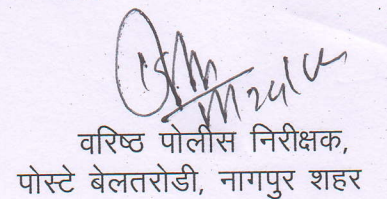 वरिष्ठ पोलीस निरीक्षक,
पोस्टे बेलतरोडी, नागपुर शहर